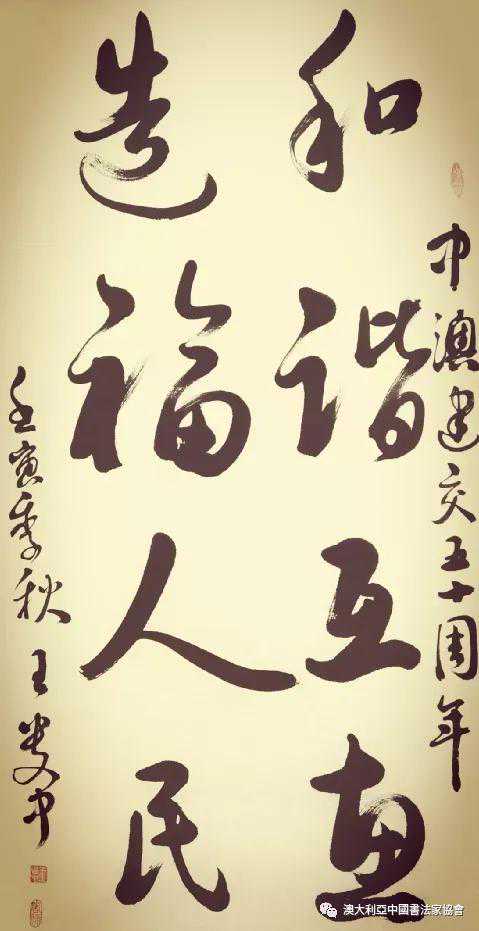 中澳建交五十周年
和谐互惠
造福人民
壬寅季秋 王中
澳大利亞中國書法家協會